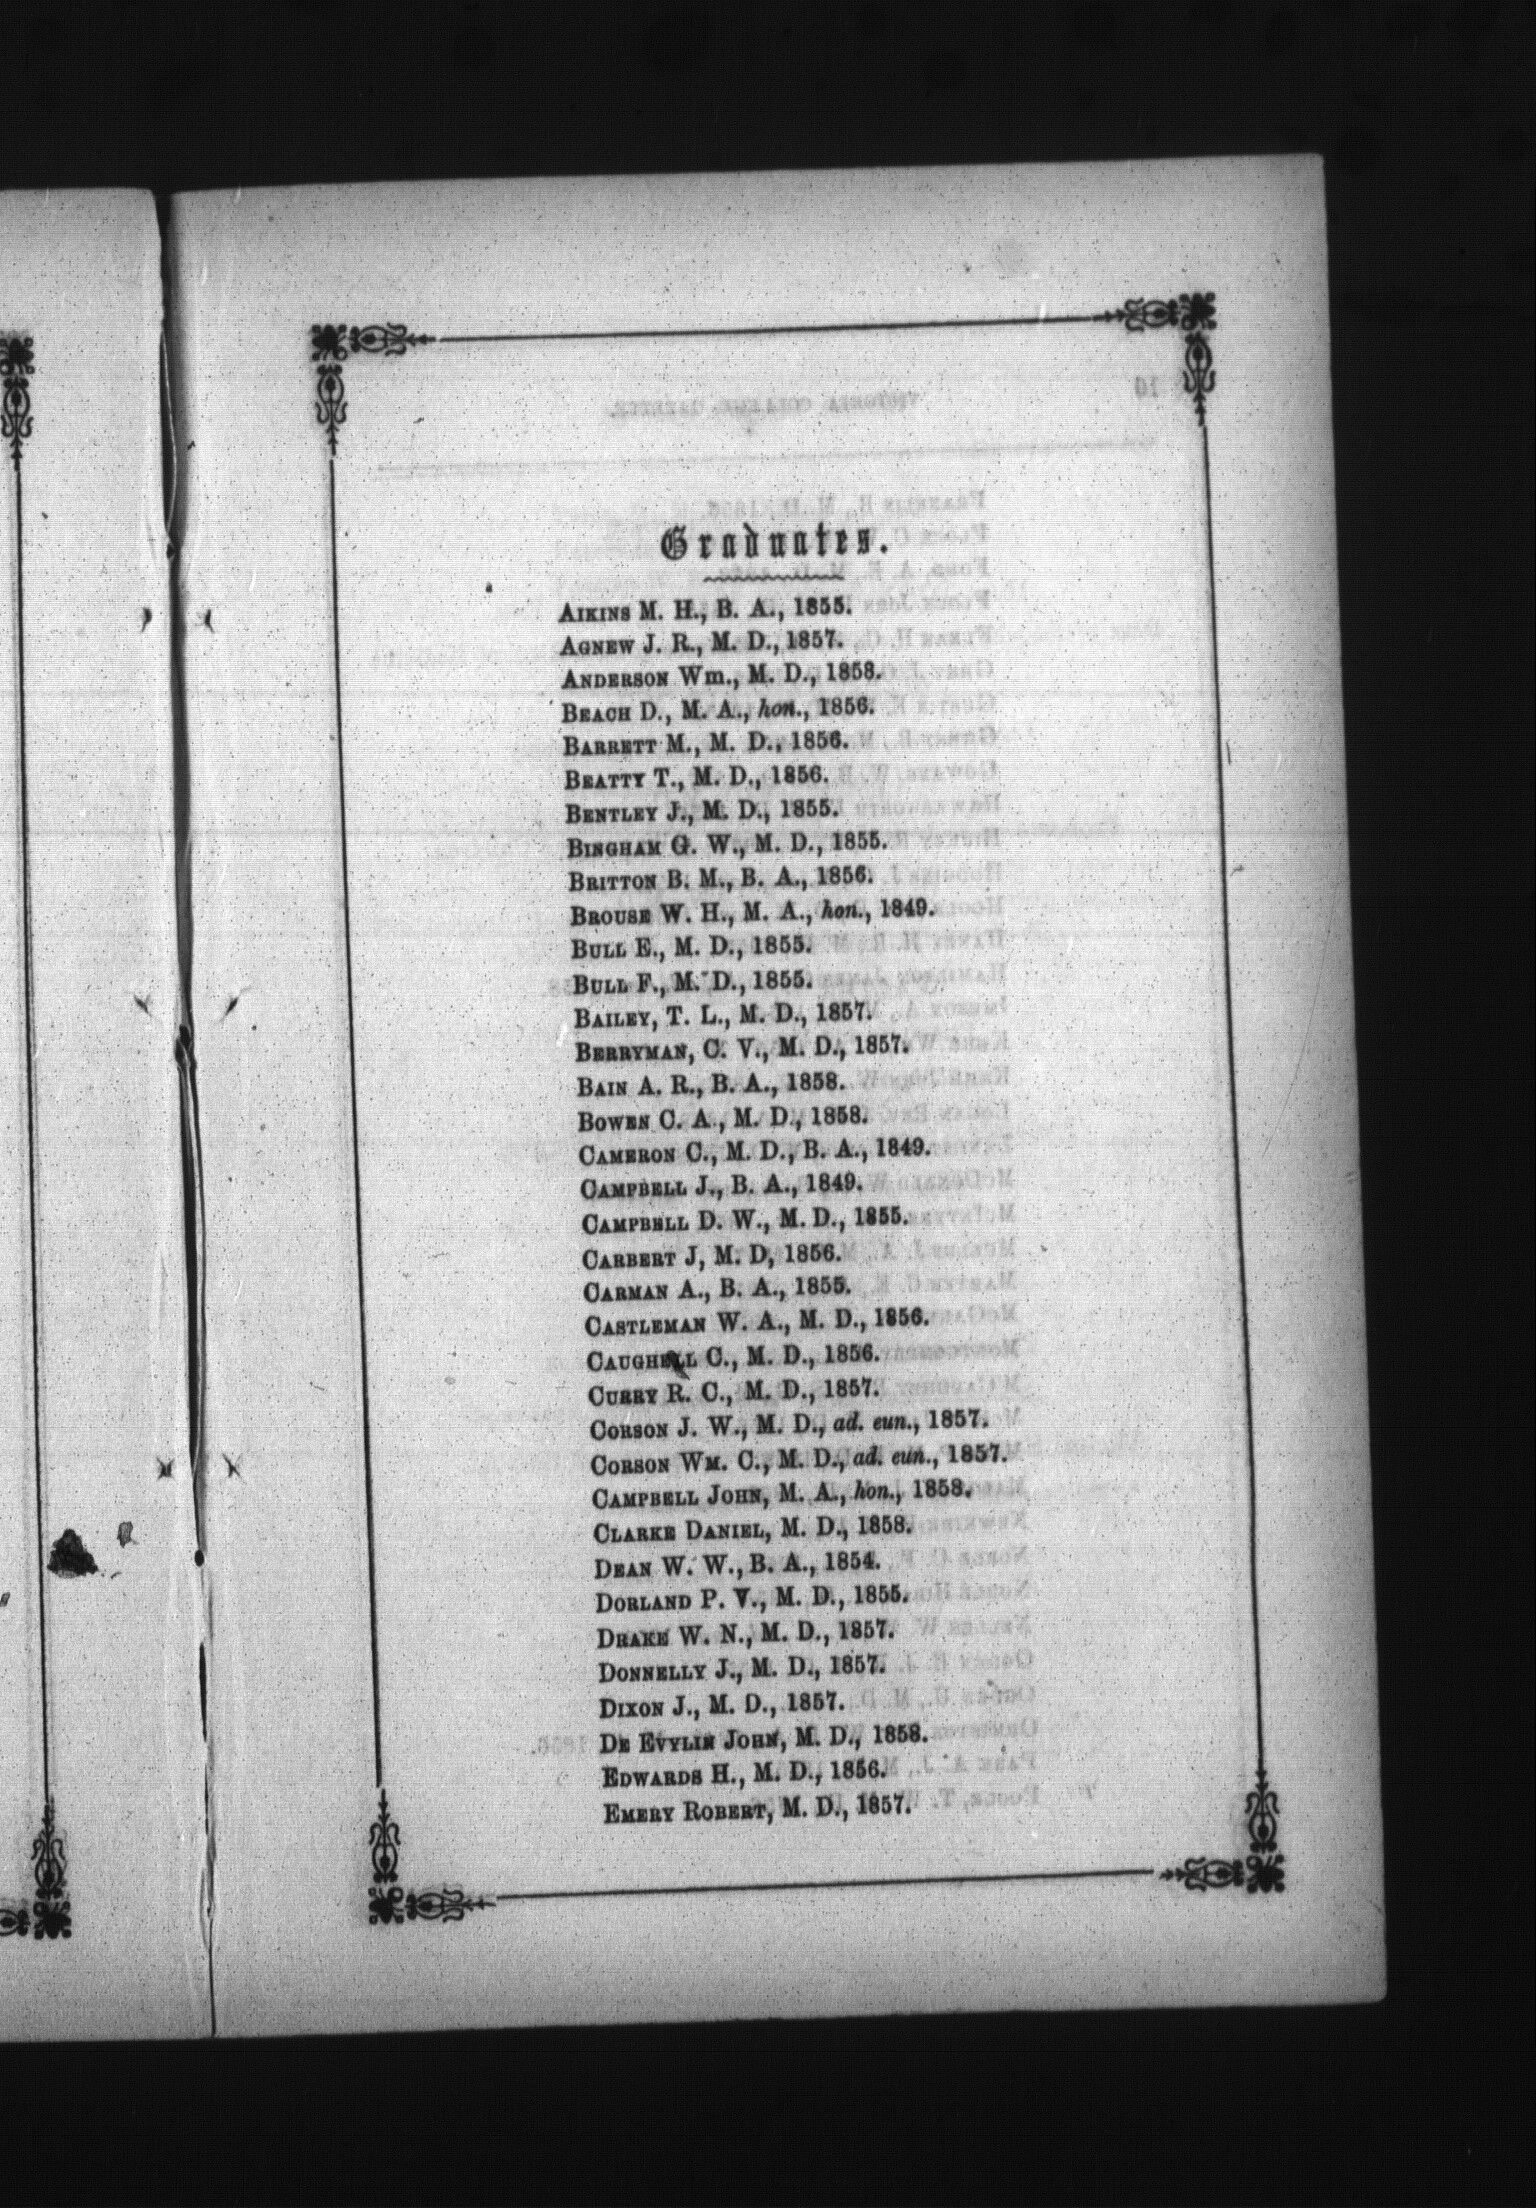 Graduates.
AIKINS M. H., B. A., 1855.
AGNEW J. R., M. D., 1857.
ANDERSON Wm., M. D., 1858.
BEACH D., M. A., hon., 1856.
BARRETT M., M. D., 1856.
BEATTY T., M. D., 1856.
BENTLEY J., M. D., 1855.
BINGHAM G. W., M. D., 1855.
BRITTON B. M., B. A., 1856.
BROUSE W. H., M. A., hon., 1849.
BULL E., M. D., 1855.
BULL F., M. D., 1855.
BAILEY, T. L., M. D., 1857.
BERRYMAN, C. V., M. D., 1857.
BAIN A. R., B. A., 1858.
BOWEN C. A., M. D., 1858.
CAMERON C., M. D., B. A., 1849.
CAMPBELL J., B. A., 1849.
CAMPBELL D. W., M. D., 1855.
CARBERT J, M. D, 1856.
CARMAN A., B. A., 1855.
CASTLEMAN W. A., M. D., 1856.
CAUGHELL C., M. D., 1856.
CURRY R. C., M. D., 1857.
CORSON J. W., M. D., ad. eun., 1857.
CORSON WM. C., M. D., ad. eun., 1857.
CAMPBELL JOHN, M. A., hon., 1858.
CLARKE DANIEL, M. D., 1858.
DEAN W. W., B. A., 1854.
DORLAND P. V., M. D., 1855.
DRAKE W. N., M. D., 1857.
DONNELLY J., M. D., 1857.
DIXON J., M. D., 1857.
DE EVYLIN JOHN, M. D., 1858.
EDWARDS H., M. D., 1856.
EMERY ROBERT, M. D., 1857.